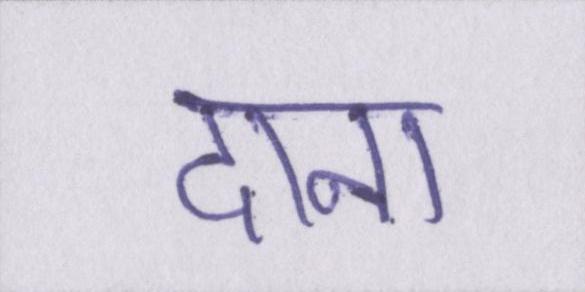 दाना